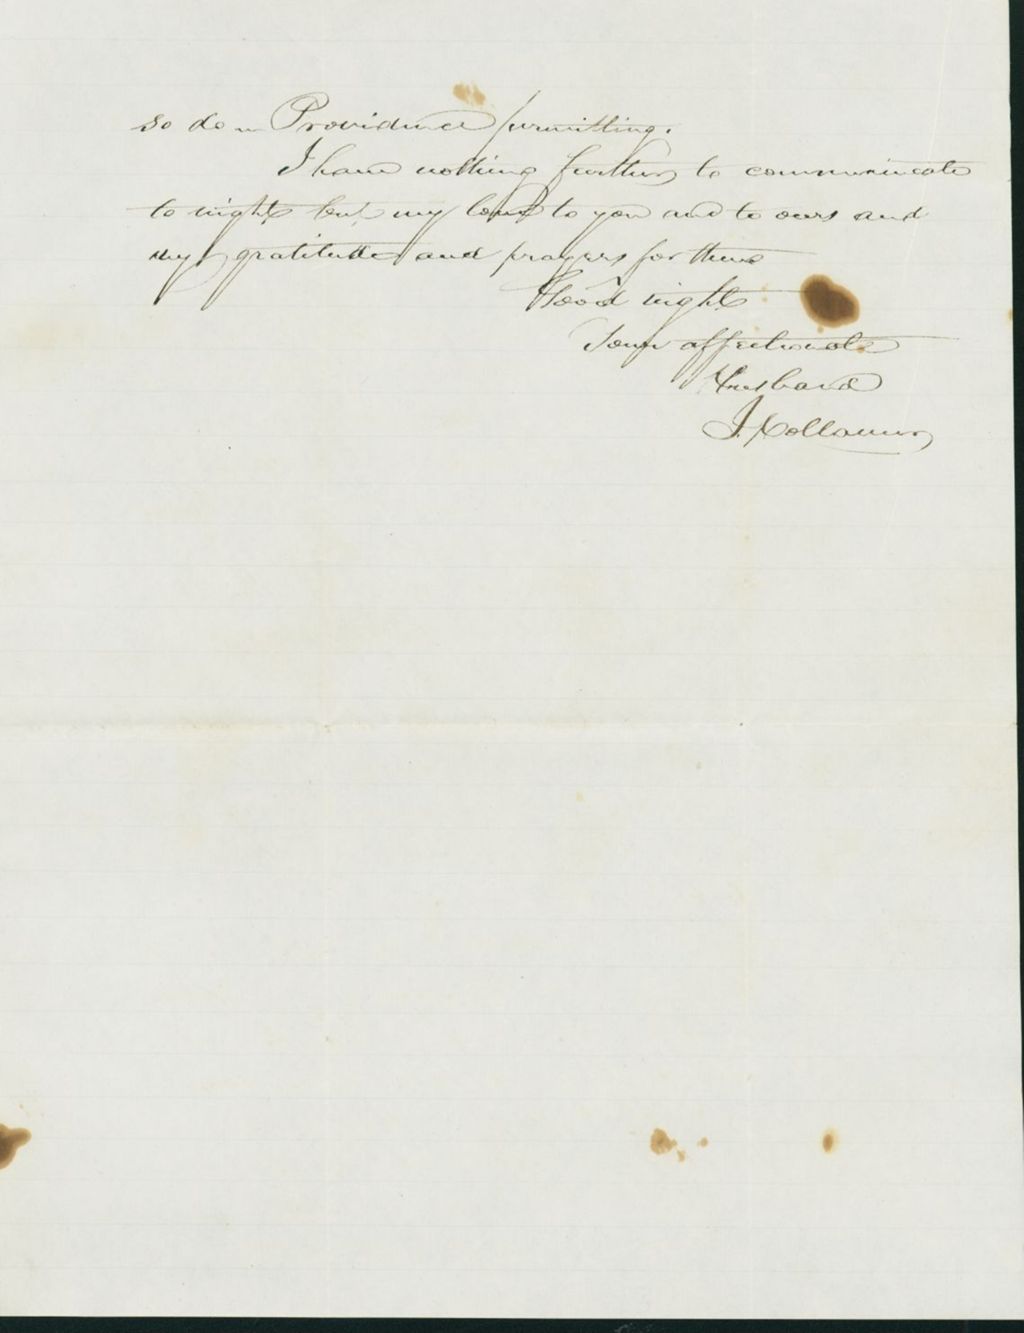 so do Providence permitting.
I have nothing further to communicate
to night but my love to you and to ours and
my gratitude and prayers for them
Good night
Your affectionate
Husband
J. Collamer